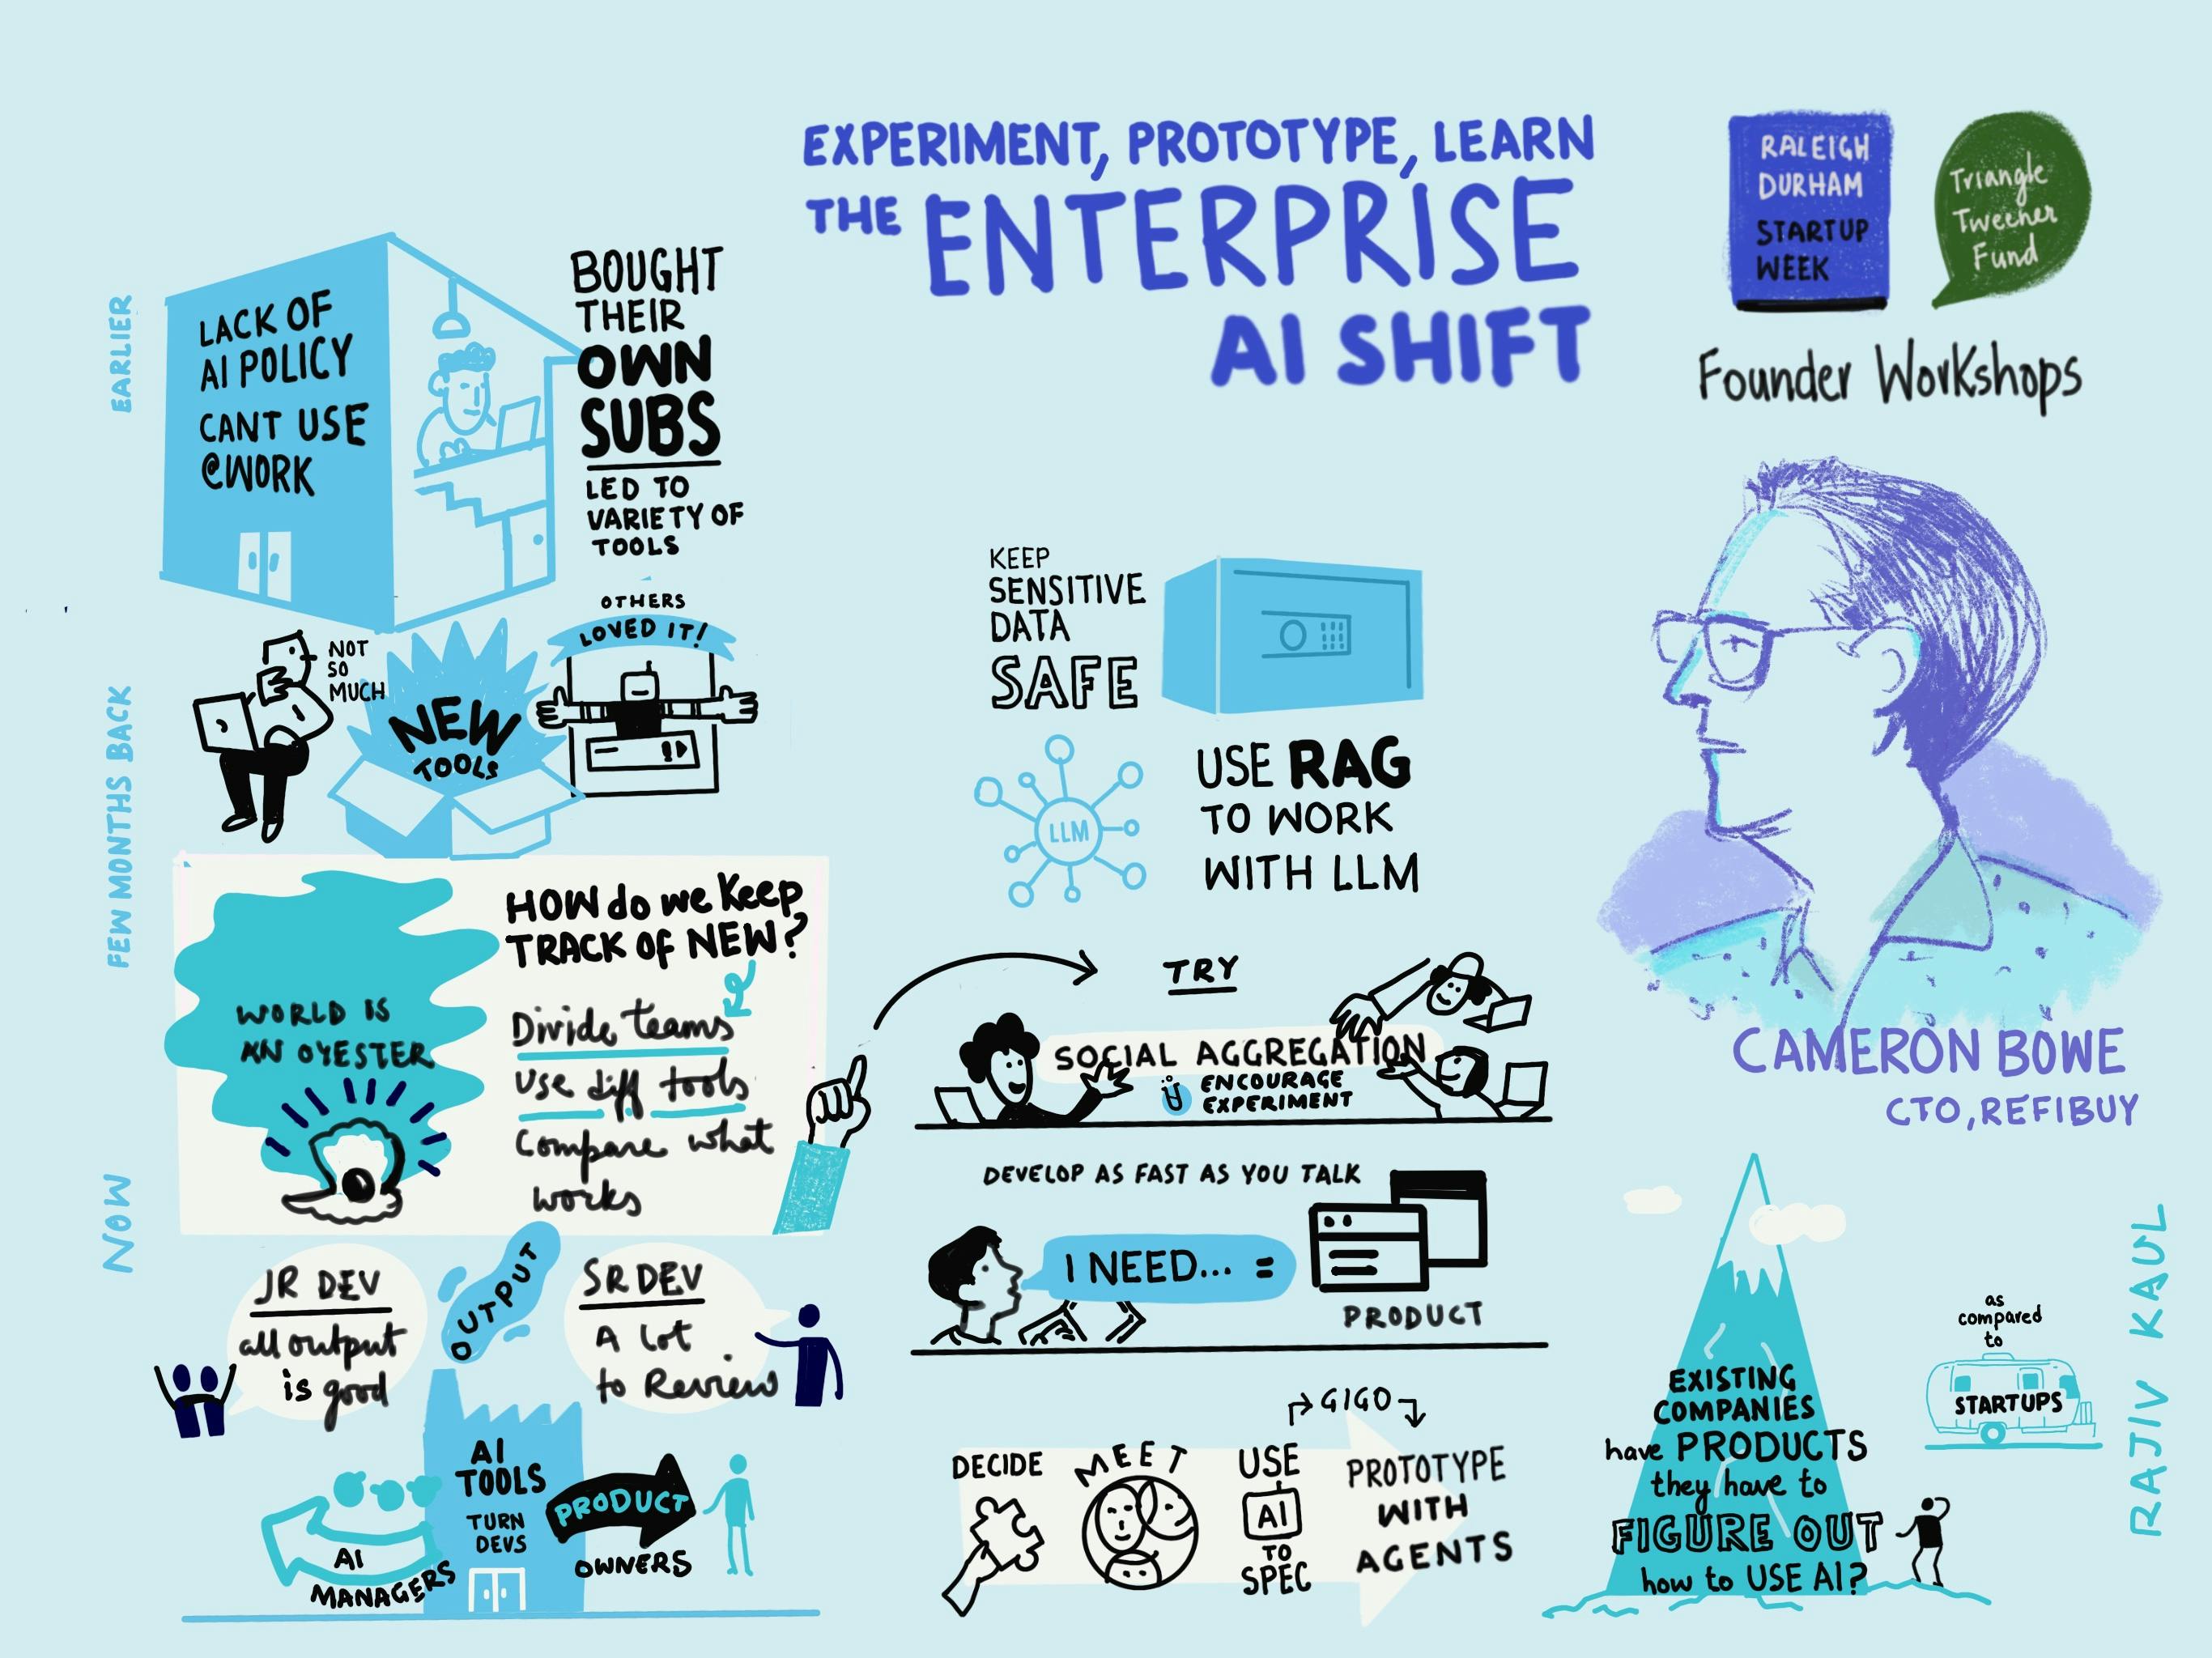 EXPERIMENT, PROTOTYPE, LEARN
THE ENTERPRISE
AI SHIFT
RALEIGH
DURHAM
STARTUP
WEEK
Triangle
Tweener
Fund
Founder Workshops
EARLIER
LACK OF
AI POLICY
CANT USE
@WORK
BOUGHT
THEIR
OWN
SUBS
LED TO
VARIETY OF
TOOLS
FEW MONTHS BACK
NOT
SO
MUCH
NEW
TOOLS
OTHERS
LOVED IT!
NOW
WORLD IS
AN OYESTER
HOW do we Keep
TRACK OF NEW?
Divide teams
Use diff tools
Compare what
works
JR DEV
all output
is good
OUTPUT
SR DEV
A lot
to Review
AI
MANAGERS
AI
TOOLS
TURN
DEVS
PRODUCT
OWNERS
KEEP
SENSITIVE
DATA
SAFE
LLM
USE RAG
TO WORK
WITH LLM
TRY
SOCIAL AGGREGATION
ENCOURAGE
EXPERIMENT
DEVELOP AS FAST AS YOU TALK
I NEED... =
PRODUCT
GIGO
DECIDE
MEET
USE
AI
TO
SPEC
PROTOTYPE
WITH
AGENTS
CAMERON BOWE
CTO, REFIBUY
EXISTING
COMPANIES
have PRODUCTS
they have to
FIGURE OUT
how to USE AI?
as
compared
to
STARTUPS
RAJIV KAUL